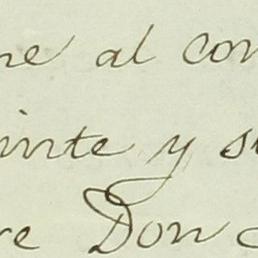 ne al con
inte y su
re Don